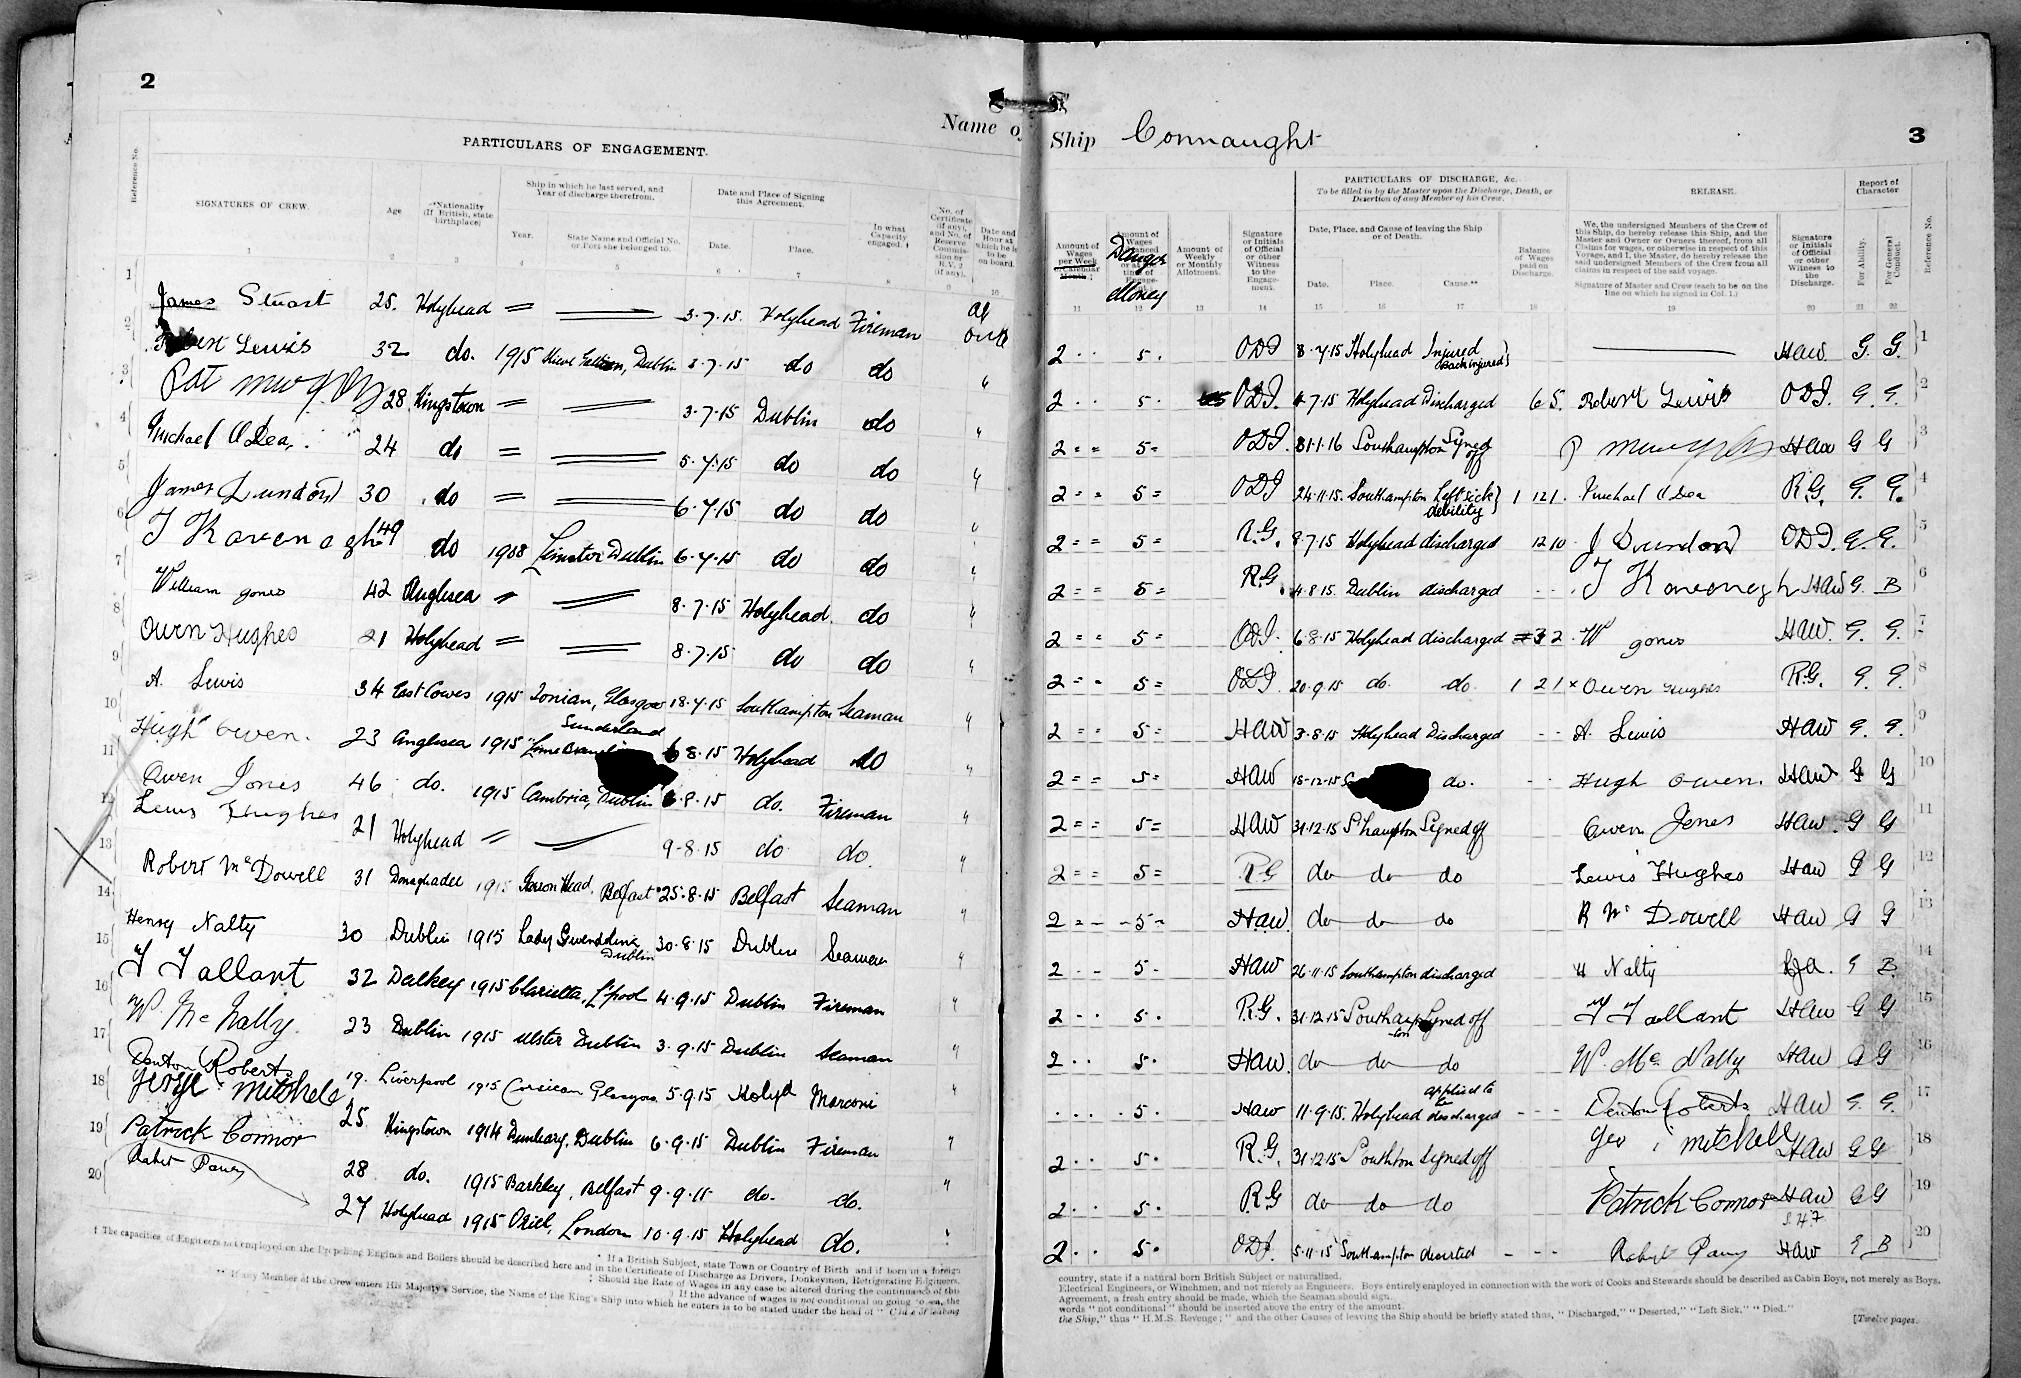 2
PARTICULARS OF ENGAGEMENT.
Name of
Reference No.
SIGNATURES OF CREW.
Age
*Nationality (If British, state birthplace)
Ship in which he last served, and Year of discharge therefrom.
Year.
State Name and Official No. or Port she belonged to.
Date and Place of Signing this Agreement.
Date.
Place.
In what Capacity engaged. †
1 2 3 4 5 6 7 8 9 10
1 James Stuart 25. Holyhead = 3.7.15. Holyhead Fireman at once
2 Robert Lewis 32 do. 1915 Dublin 3.7.15 do do "
3 Pat 28 Kingstown = 3.7.15 Dublin do "
4 Michael O'Dea 24 do = 5.7.15 do do "
5 James Dundon 30 do = 6.7.15 do do "
6 T Kavenagh 49 do 1908 Leinster Dublin 6.7.15 do do "
7 William Jones 42 Anglesea " 8.7.15 Holyhead. do "
8 Owen Hughes 21 Holyhead = 8.7.15 do do "
9 A. Lewis 34 East Cowes 1915 Ionian, Glasgow 18.7.15 Southampton Seaman "
10 Hugh Owen. 23 Anglesea 1915 Sunderland 6.8.15 Holyhead do "
11 Owen Jones 46 do. 1915 Cambria, Dublin 6.8.15 do. Fireman "
12 Lewis Hughes 21 Holyhead " 9.8.15 do do. "
13 Robert McDowell 31 Donaghadee 1915 Head, Belfast 25.8.15 Belfast Seaman "
14 Henry Nalty 30 Dublin 1915 Lady Gwendoline Dublin 30.8.15 Dublin Seaman "
15 T Tallant 32 Dalkey 1915 L'pool 4.9.15 Dublin Fireman "
16 W McNally. 23 Dublin 1915 Ulster Dublin 3.9.15 Dublin Seaman "
17 Denton Roberts 19. Liverpool 1915 Corsican Glasgow 5.9.15 Holyhd Marconi "
18 George Mitchell 25. Kingstown 1914 Dunleary, Dublin 6.9.15 Dublin Fireman "
19 Patrick Connor 28 do. 1915 Barkley, Belfast 9.9.15 do. do. "
20 Robert Parry 27 Holyhead 1915 Oriel, London 10.9.15 Holyhead do. "
† The capacities of Engineers not employed on the Propelling Engines and Boilers should be described here and in the Certificate of Discharge as Drivers, Donkeymen, Refrigerating Engineers,
* If a British Subject, state Town or Country of Birth and if born in a foreign
‡ Should the Rate of Wages in any case be altered during the continuance of this
|| If the advance of wages is not conditional on going to sea, the
** If any Member of the Crew enters His Majesty's Service, the Name of the King's Ship into which he enters is to be stated under the head of
3
Ship Connaught
PARTICULARS OF DISCHARGE, &c.
To be filled in by the Master upon the Discharge, Death, or Desertion of any Member of his Crew.
RELEASE.
Report of Character
Amount of Wages per Week or Calendar Month
Danger Money
Amount of Weekly or Monthly Allotment.
Signature or Initials of Official or other Witness to the Engagement.
Date, Place, and Cause of leaving the Ship or of Death.
Date.
Place.
Cause.**
Balance of Wages paid on Discharge.
We, the undersigned Members of the Crew of this Ship, do hereby release this Ship, and the Master and Owner or Owners thereof, from all Claims for wages, or otherwise in respect of this Voyage, and I, the Master, do hereby release the said undersigned Members of the Crew from all claims in respect of the said voyage.
Signature of Master and Crew (each to be on the line on which he signed in Col. 1.)
Signature or Initials of Official or other Witness to the Discharge.
For Ability.
For General Conduct.
Reference No.
11 12 13 14 15 16 17 18 19 20 21 22
2 . . 5 . ODJ 8.7.15 Holyhead Injured Back injured} HAW G. G. 1
2 . . 5 . ODJ. 7.15 Holyhead Discharged 6 5. Robert Lewis ODJ. G. G. 2
2 = = 5 = ODJ. 31.1.16 Southampton Signed off P HAW G G 3
2 = = 5 = ODJ 24.11.15. Southampton Left sick debility} 1 12 1. Michael O'Dea R.G. G. G. 4
2 = = 5 = R.G. 8.7.15 Holyhead discharged 12 10 J Dundon ODJ. G. G. 5
2 = = 5 = R.G. 4.8.15. Dublin discharged T Kavenagh HAW G. B 6
2 = = 5 = ODJ. 6.8.15 Holyhead discharged 3 2 W Jones HAW. G. G. 7
2 = = 5 = ODJ. 20.9.15 do. do. 1 2 1 x Owen Hughes R.G. G. G. 8
2 = = 5 = HAW 3.8.15 Holyhead Discharged A. Lewis HAW G. G. 9
2 = = 5 = HAW 15.12.15 do. Hugh Owen. HAW G G 10
2 = = 5 = HAW 31.12.15 S'hampton Signed off Owen Jones HAW. G G 11
2 = = 5 = RG do do do Lewis Hughes HAW G G 12
2 = - - 5 = HAW. do do do R Mc Dowell HAW G G 13
2 . . 5 . HAW 26.11.15 Southampton discharged H Nalty G B. 14
2 . . 5 . R.G. 31.12.15 Southampton Signed off T Tallant HAW G G 15
2 . . 5 . HAW. do do do W. Mc Nally HAW G G 16
. . . . 5 . HAW 11.9.15. Holyhead applied to be discharged Denton Roberts HAW G. G. 17
2 . . 5 . R.G. 31.12.15 Southton Signed off Geo Mitchell HAW G G 18
2 . . 5 . R.G do do do Patrick Connor HAW G G 19
2 . . 5 . ODJ. 5.11.15 Southampton deserted Robert Parry HAW G B 20
country, state if a natural born British Subject or naturalized.
Electrical Engineers, or Winchmen, and not merely as Engineers. Boys entirely employed in connection with the work of Cooks and Stewards should be described as Cabin Boys, not merely as Boys.
Agreement, a fresh entry should be made, which the Seaman should sign.
words "not conditional" should be inserted above the entry of the amount.
the Ship," thus "H.M.S. Revenge;" and the other Causes of leaving the Ship should be briefly stated thus, "Discharged," "Deserted," "Left Sick," "Died."
[Twelve pages.